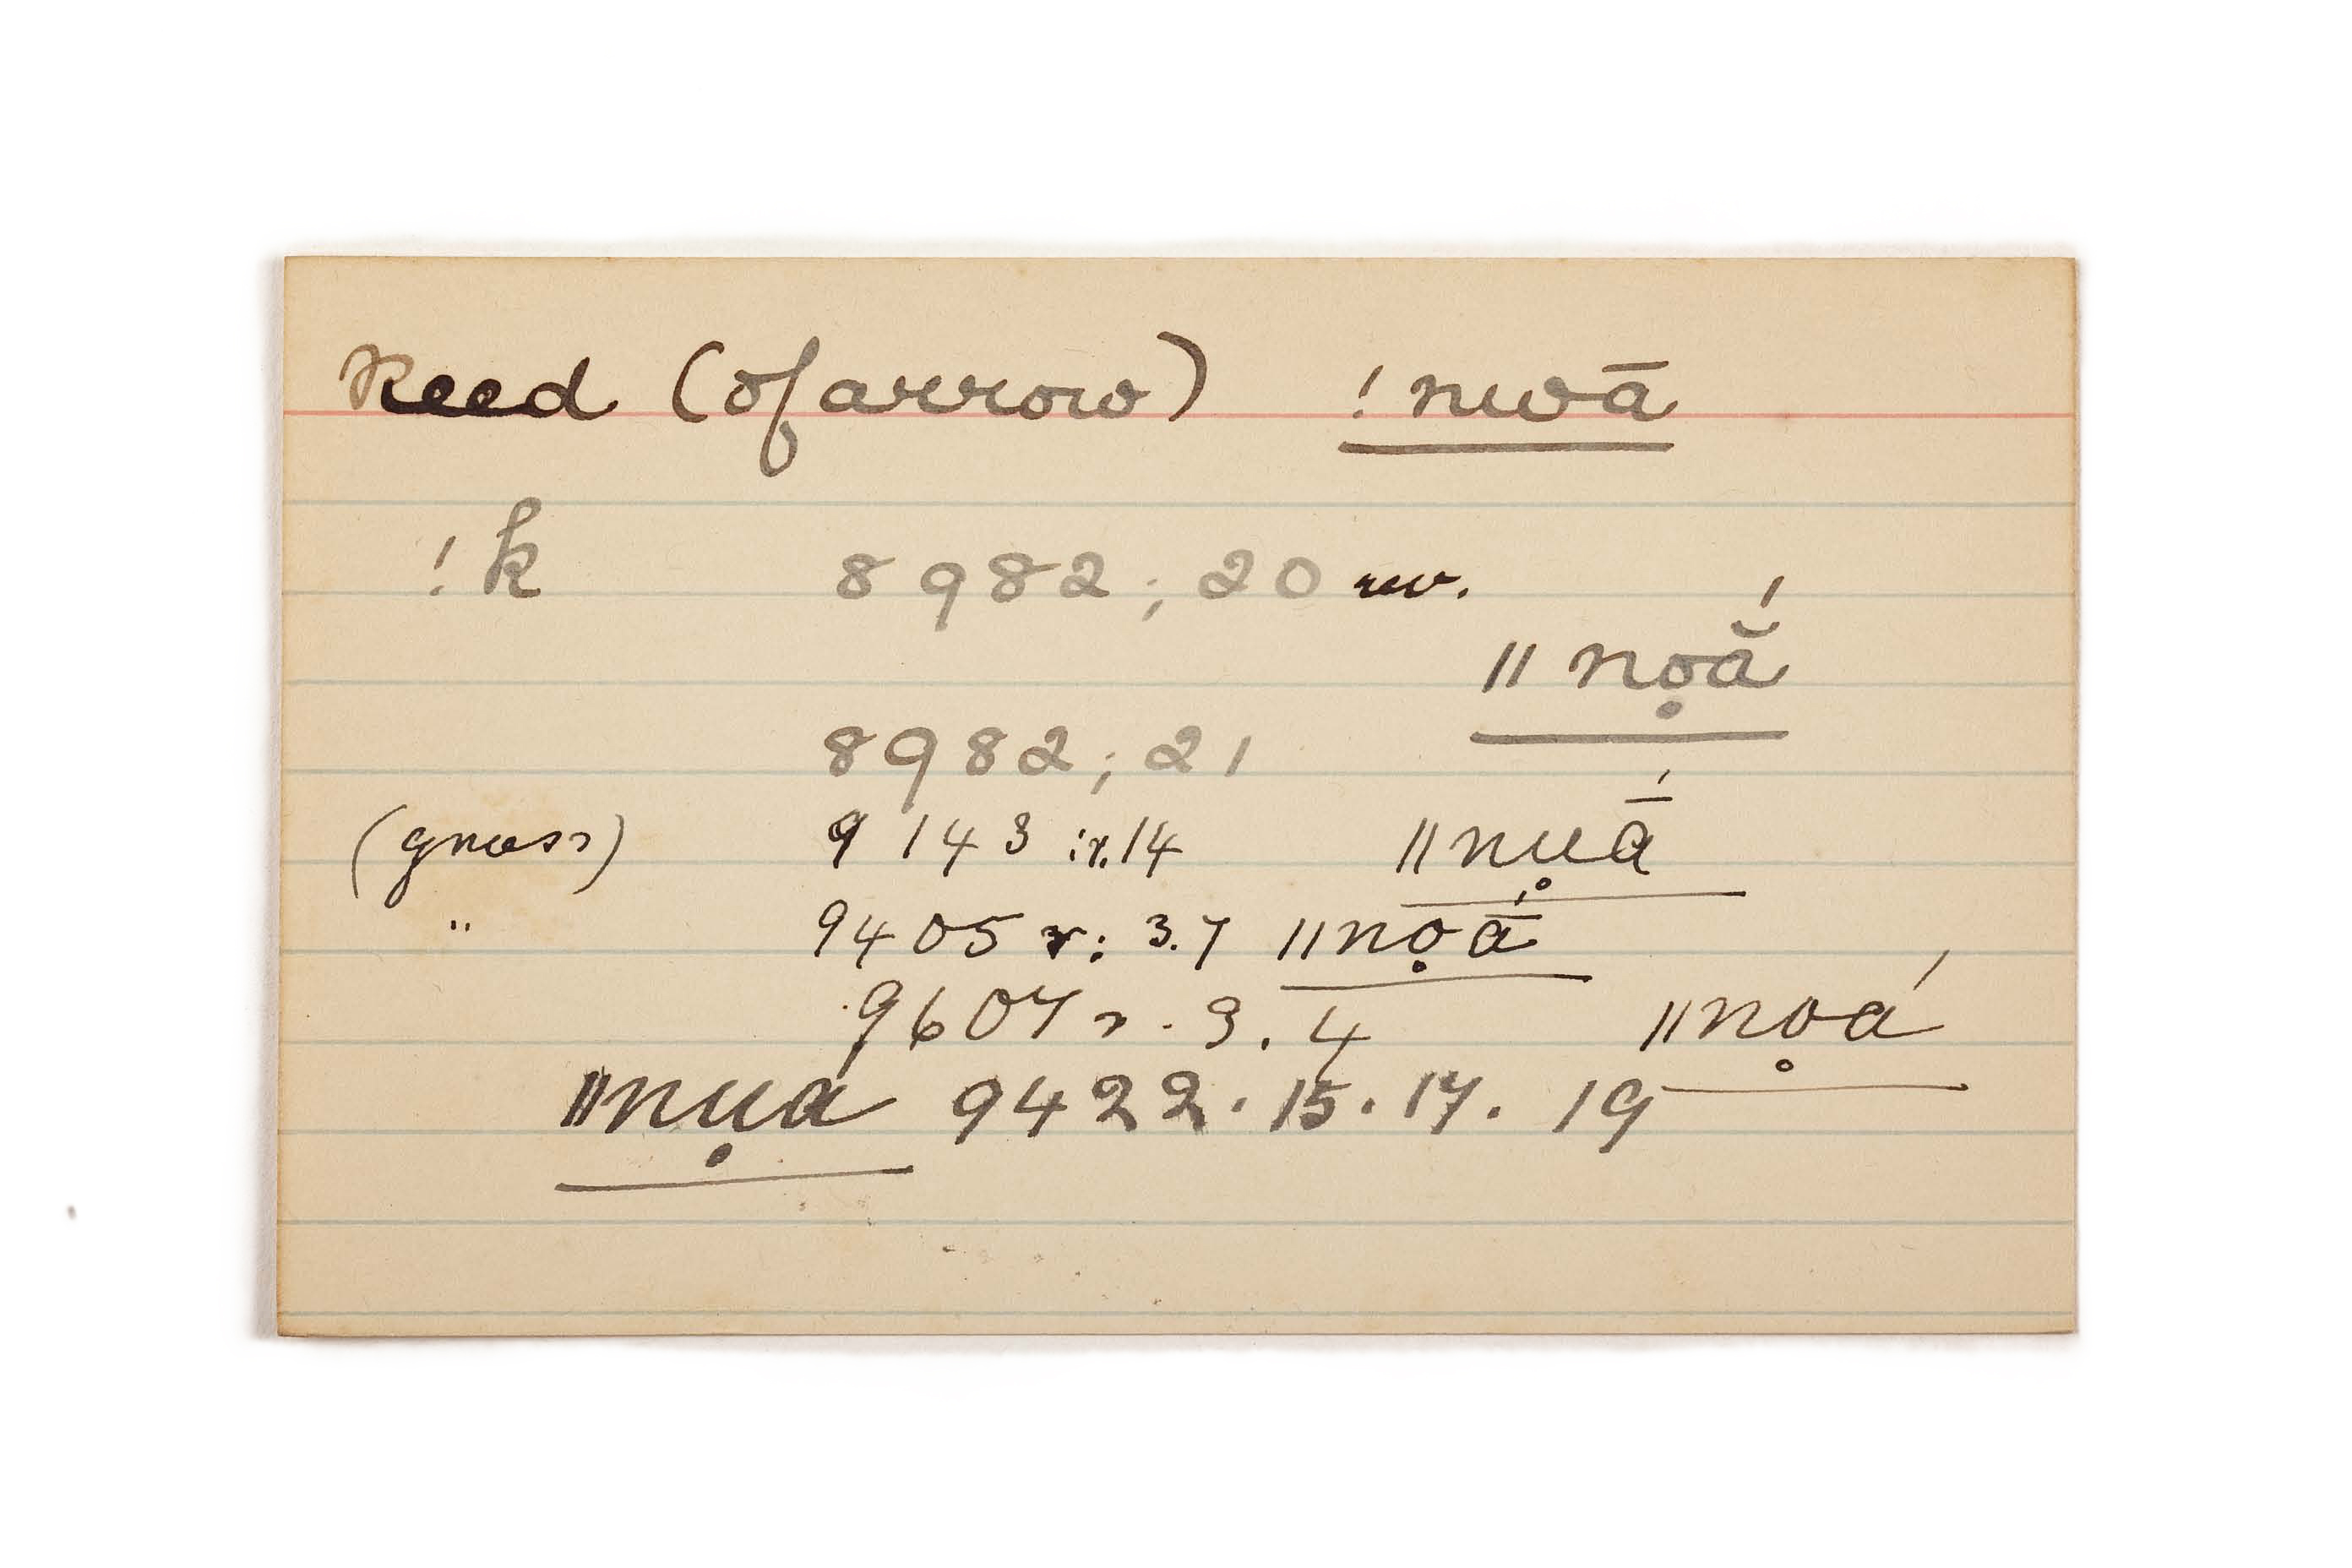 Reed (of arrow) !nwā
!k 8982; 20 rev.
ǁnọắ
8982; 21
(grass) 9143 : r. 14 ǁnụā́
" 9405 r: 3.7 ǁnọā́
9607 r. 3.4 ǁnọá
ǁnụa 9422. 15. 17. 19